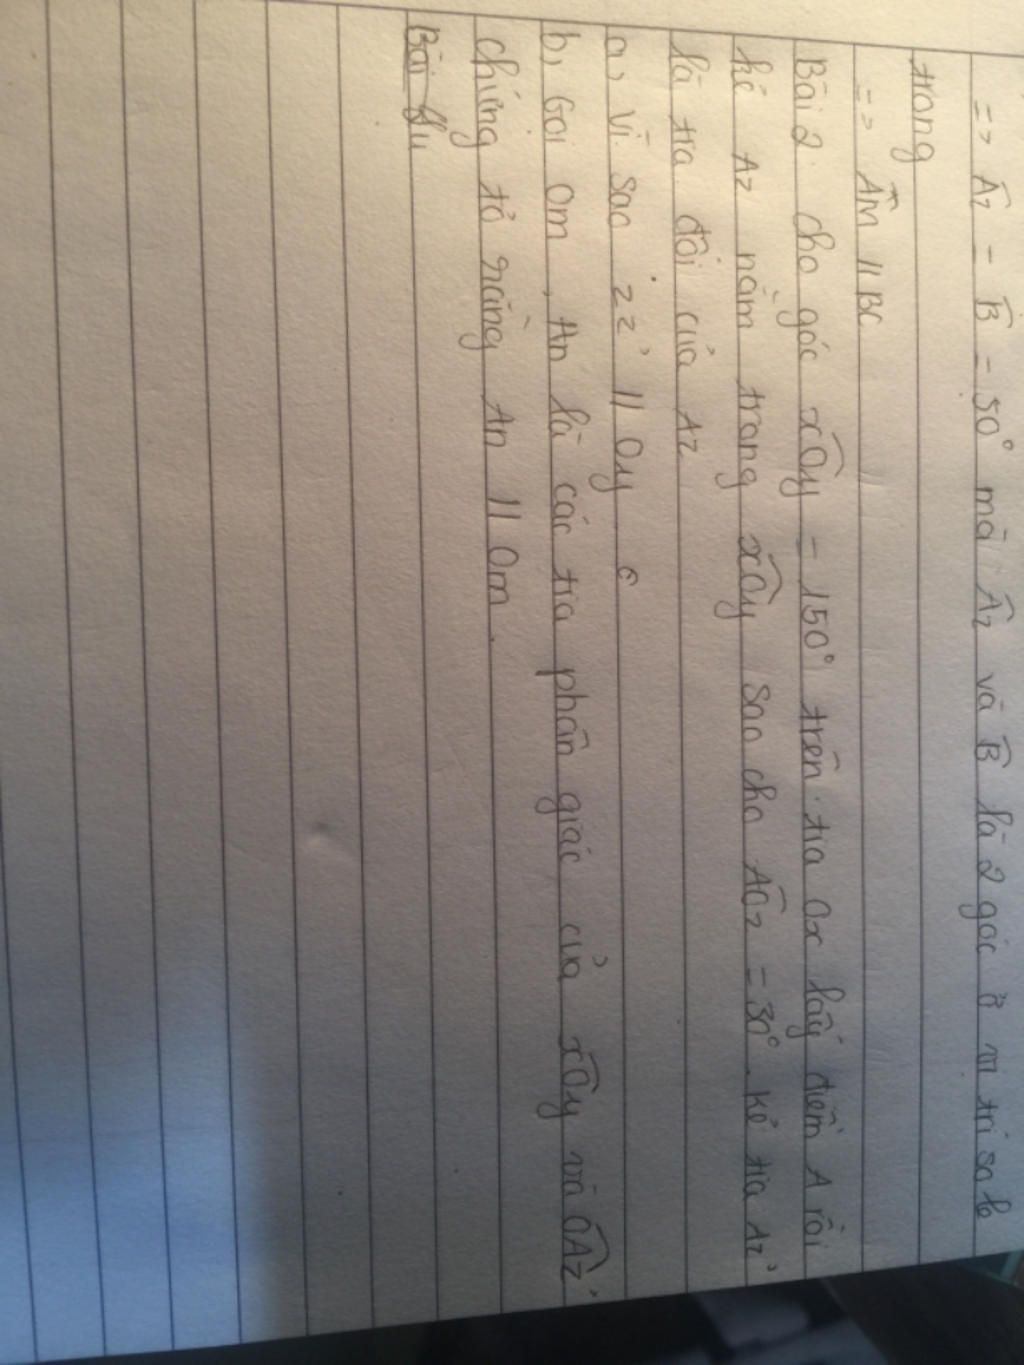 => Â₂ = B̂ = 50° mà Â₂ và B̂ là 2 góc ở vị trí so le
trong
=> AM // BC
Bài 2. cho góc xOy = 150° trên tia Ox lấy điểm A rồi
kẻ Az nằm trong xOy sao cho AOz = 30°. Kẻ tia Az'
là tia đối của Az
a, Vì sao zz' // Oy
b, Gọi Om, An là các tia phân giác của xOy và OAz'
chứng tỏ rằng An // Om.
Bài